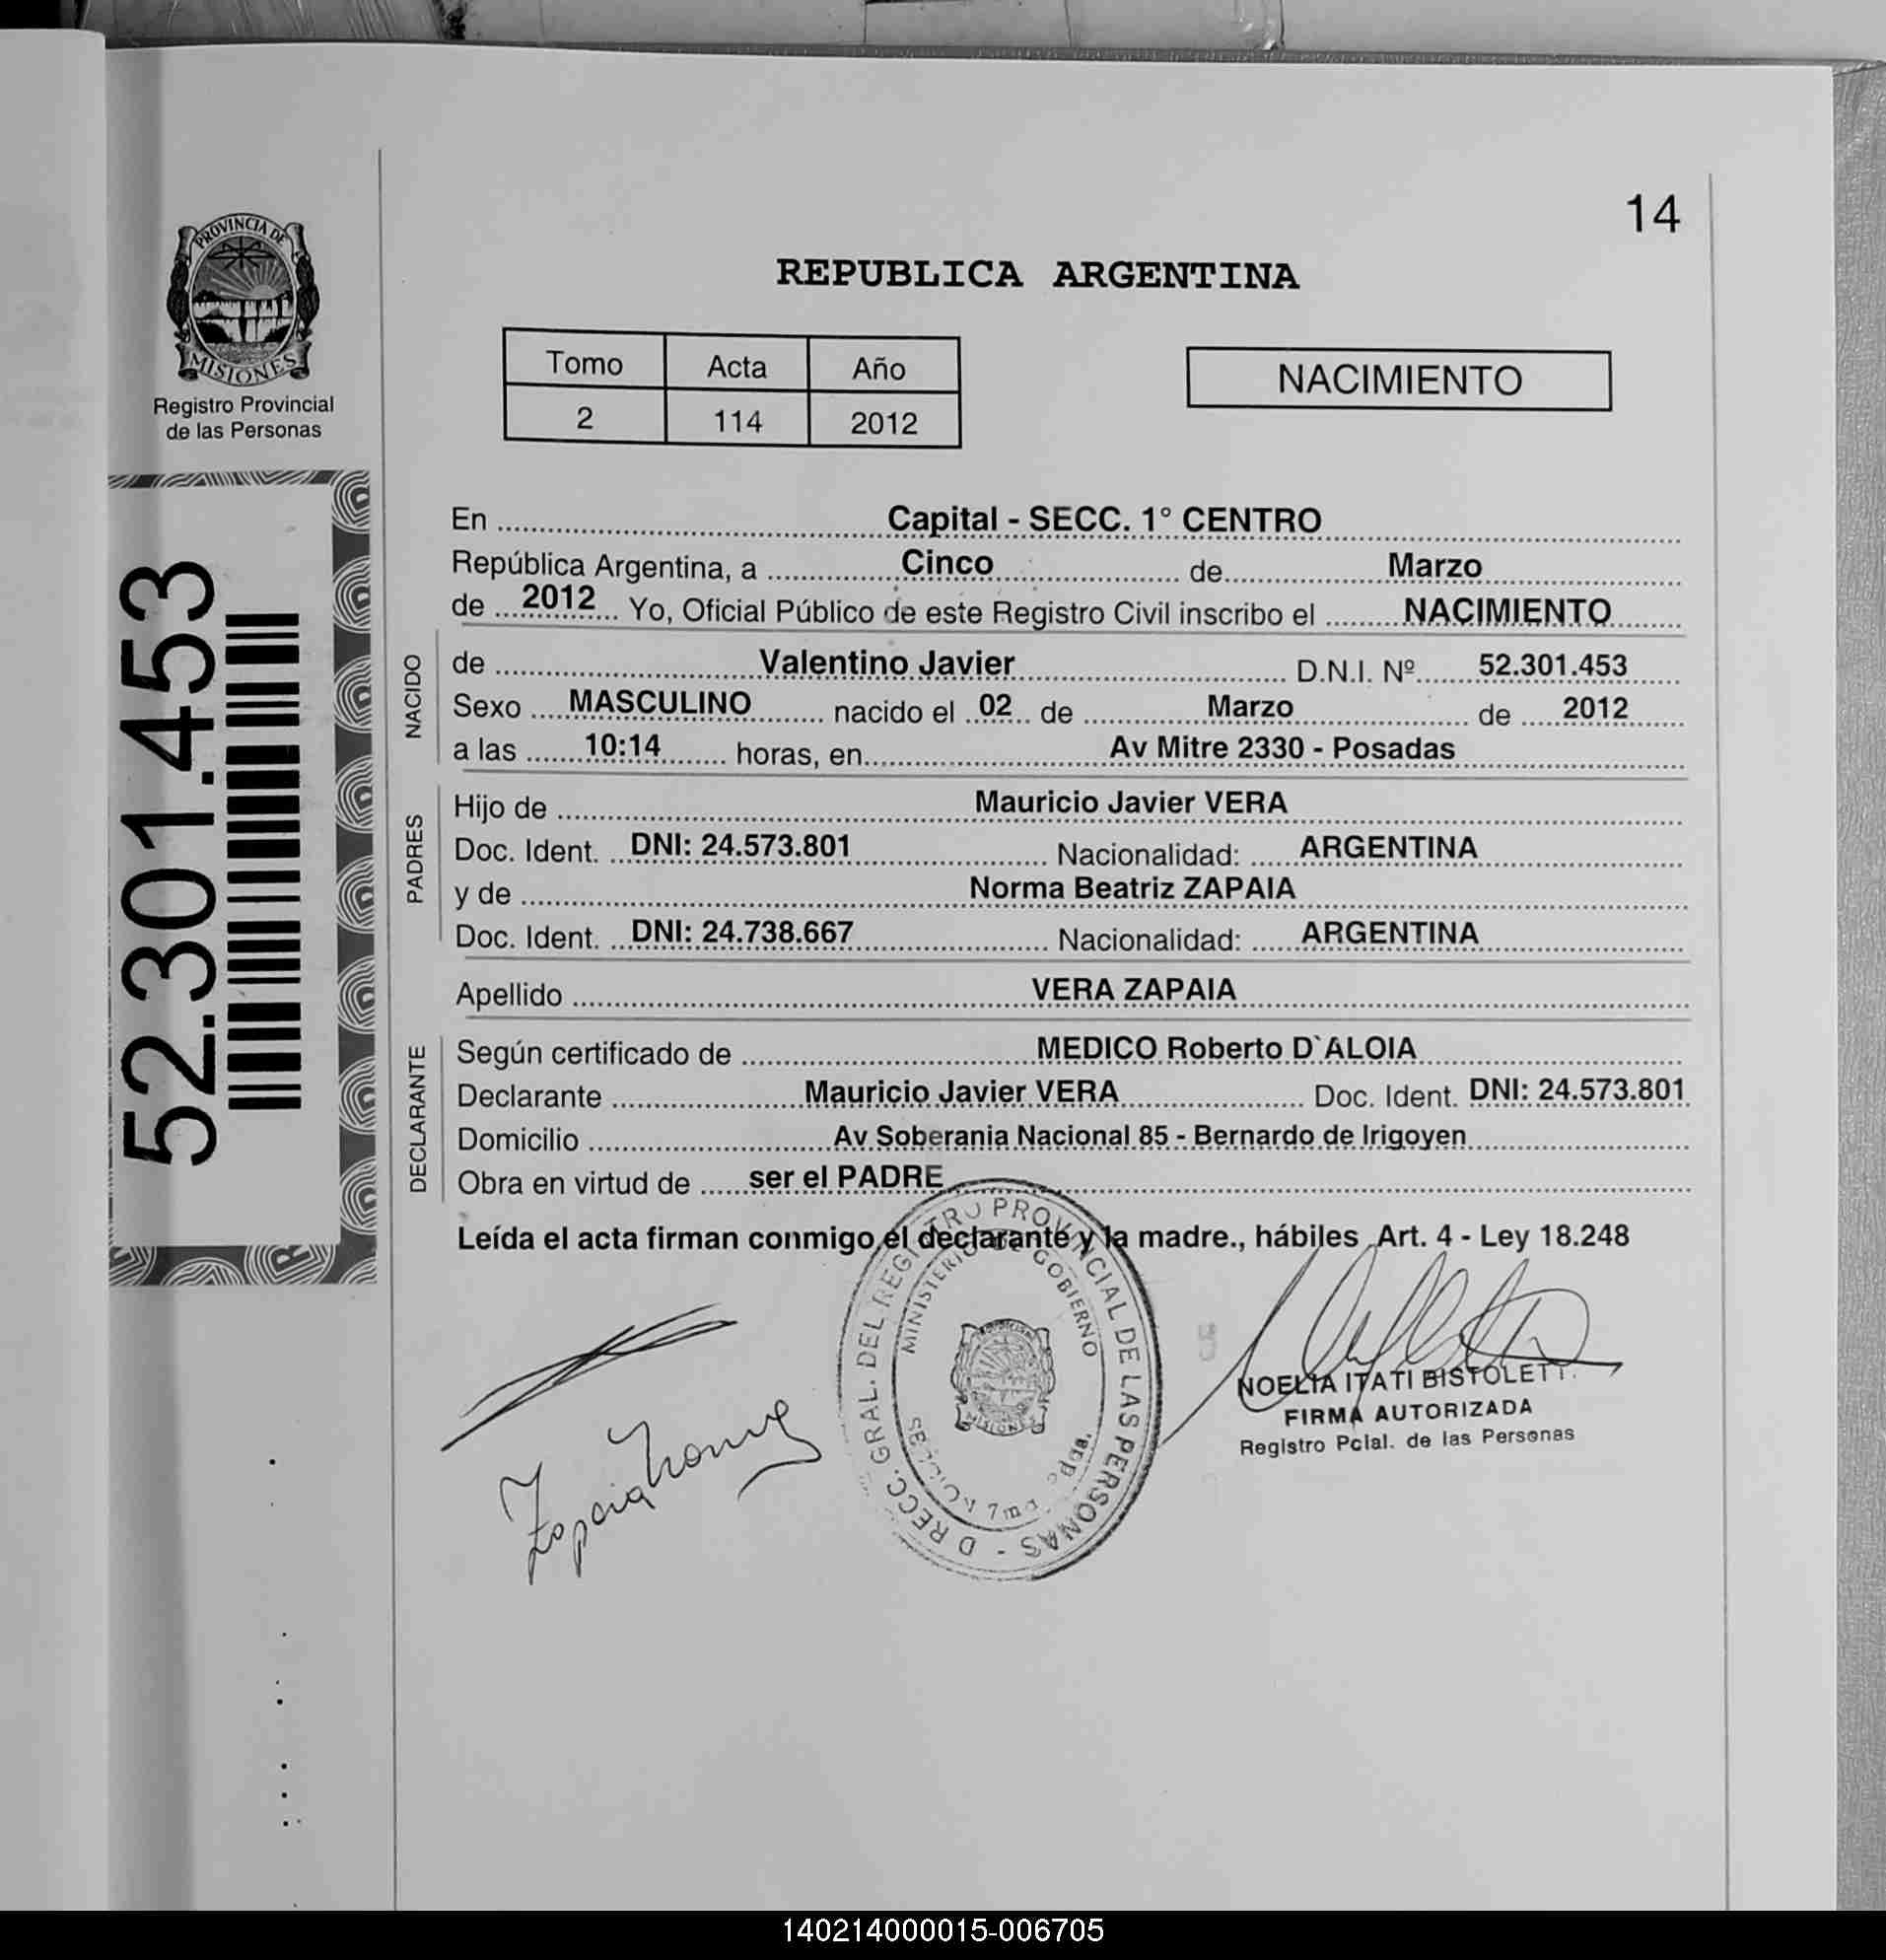 14
PROVINCIA DE
MISIONES
Registro Provincial
de las Personas
REPUBLICA ARGENTINA
Tomo Acta Año
2 114 2012
NACIMIENTO
52.301.453
En Capital - SECC. 1° CENTRO
República Argentina, a Cinco de Marzo
de 2012 Yo, Oficial Público de este Registro Civil inscribo el NACIMIENTO
NACIDO
de Valentino Javier D.N.I. Nº 52.301.453
Sexo MASCULINO nacido el 02 de Marzo de 2012
a las 10:14 horas, en Av Mitre 2330 - Posadas
PADRES
Hijo de Mauricio Javier VERA
Doc. Ident. DNI: 24.573.801 Nacionalidad: ARGENTINA
y de Norma Beatriz ZAPAIA
Doc. Ident. DNI: 24.738.667 Nacionalidad: ARGENTINA
Apellido VERA ZAPAIA
DECLARANTE
Según certificado de MEDICO Roberto D`ALOIA
Declarante Mauricio Javier VERA Doc. Ident. DNI: 24.573.801
Domicilio Av Soberania Nacional 85 - Bernardo de Irigoyen
Obra en virtud de ser el PADRE
Leída el acta firman conmigo el declarante y la madre., hábiles Art. 4 - Ley 18.248
GRAL. DEL REGISTRO PROVINCIAL DE LAS PERSONAS -
MINISTERIO DE GOBIERNO
MISIONES
Zapaia
NOELIA ITATI
FIRMA AUTORIZADA
Registro Pcial. de las Personas
140214000015-006705